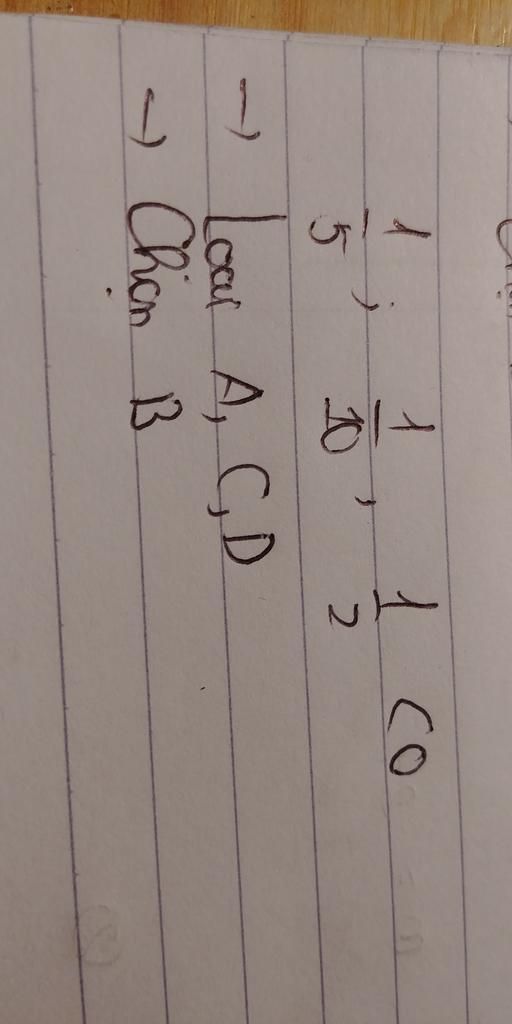 1/5, 1/10, 1/2 < 0
→ Loại A, C, D
→ Chọn B